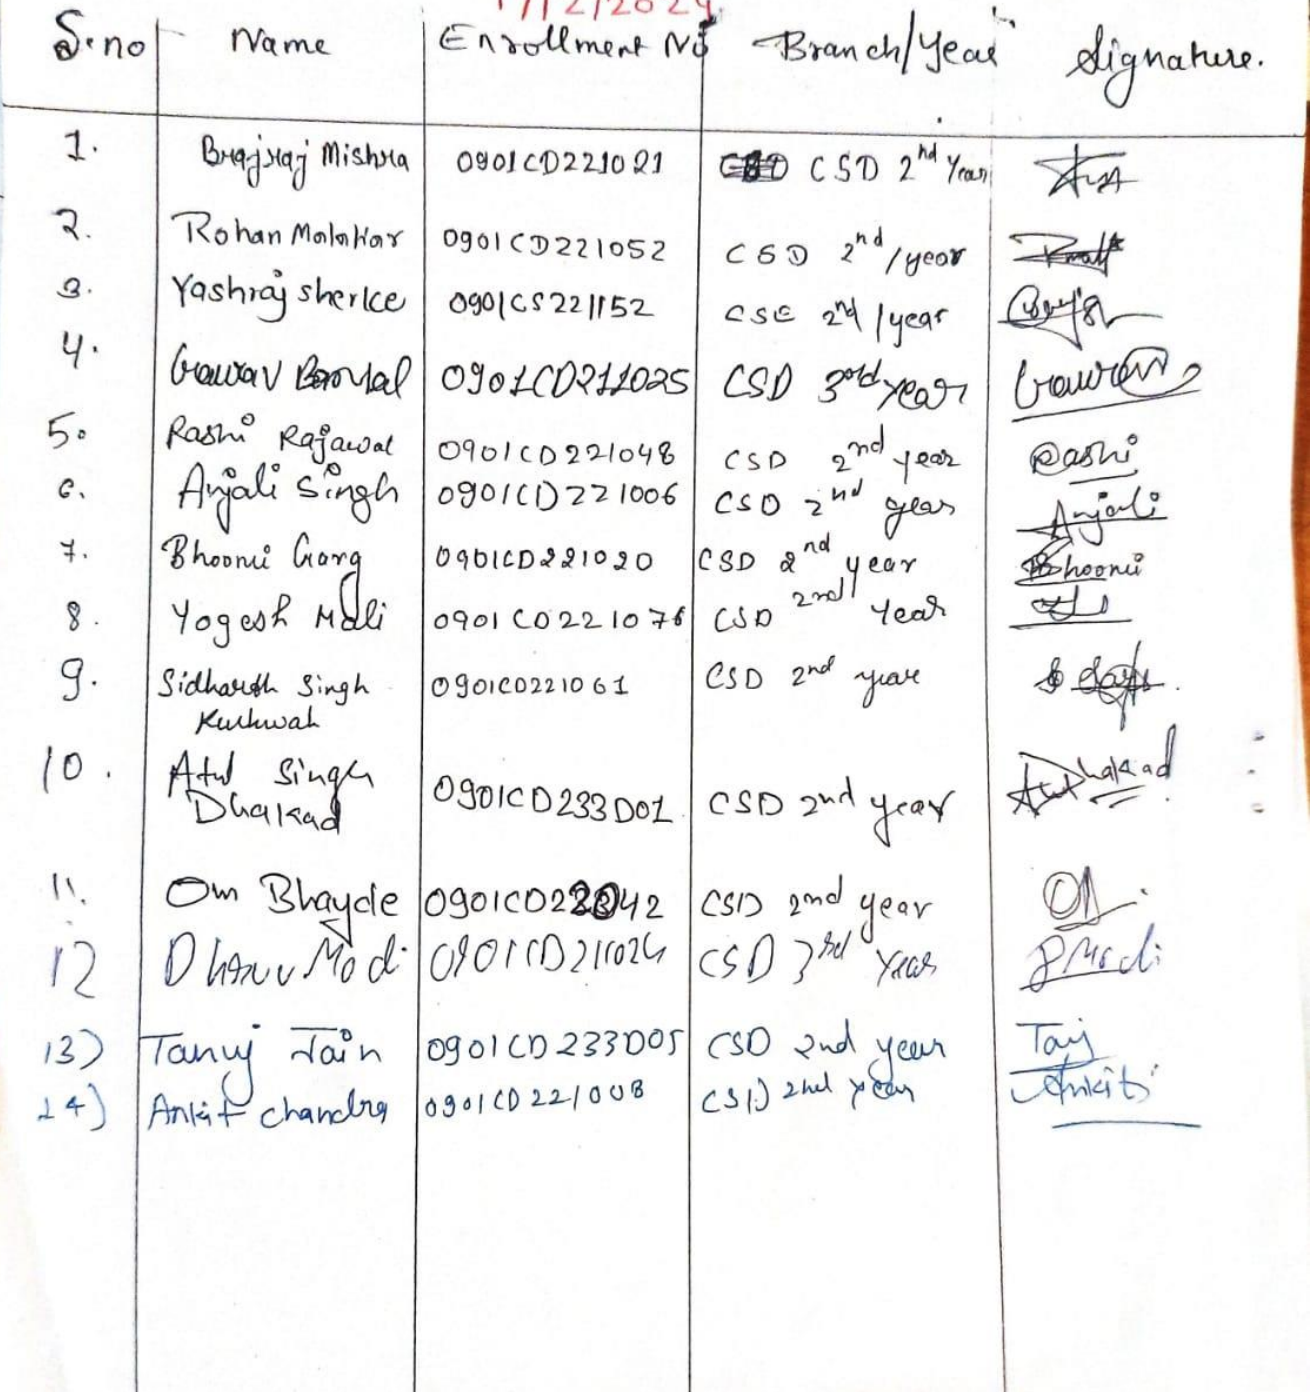 17/2/2024
S.no Name Enrollment No Branch/Year Signature.
1. Brajraj Mishra 0901CD221021 CSD 2nd Year
2. Rohan Malakar 0901CD221052 CSD 2nd/year
3. Yashraj sherke 0901CS221152 CSE 2nd/year
4. Gaurav 0901CD211025 CSD 3rd year Gaurav
5. Rashi Rajawat 0901CD221048 CSD 2nd year Rashi
6. Anjali Singh 0901CD221006 CSD 2nd year Anjali
7. Bhoomi Garg 0901CD221020 CSD 2nd year Bhoomi
8. Yogesh Mali 0901CD221076 CSD 2nd Year
9. Sidharth Singh 0901CD221061 CSD 2nd year
Kushwah
10. Atul Singh 0901CD233D01 CSD 2nd year Dhakad
Dhakad
11. Om Bhayde CSD 2nd year
12 Dhruv Modi 0901CD211024 CSD 3rd Year DModi
13) Tanuj Jain 0901CD233D05 CSD 2nd year Taij
14) Ankit chandra 0901CD221008 CSD 2nd year Ankit